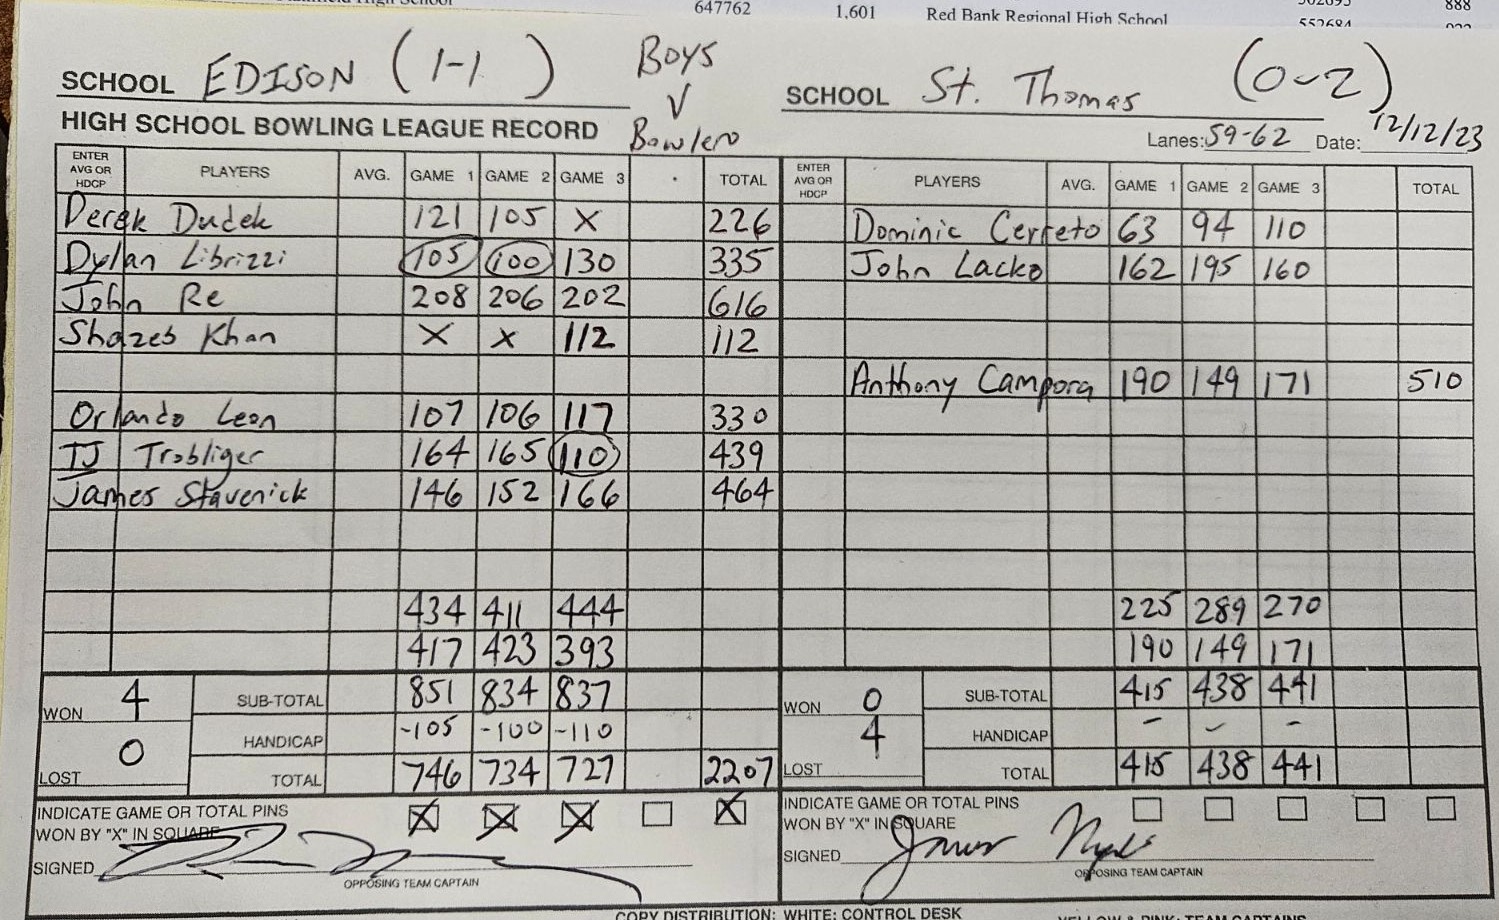 647762 1,601 Red Bank Regional High School 888
SCHOOL EDISON (1-1) Boys SCHOOL St. Thomas (0-2)
V
HIGH SCHOOL BOWLING LEAGUE RECORD Bowlero Lanes: 59-62 Date: 12/12/23
ENTER AVG OR HDCP PLAYERS AVG. GAME 1 GAME 2 GAME 3 TOTAL ENTER AVG OR HDCP PLAYERS AVG. GAME 1 GAME 2 GAME 3 TOTAL
Derek Dudek 121 105 X 226 Dominic Cerreto 63 94 110
Dylan Librizzi 105 100 130 335 John Lacko 162 195 160
John Re 208 206 202 616
Shazeb Khan X X 112 112
Anthony Campora 190 149 171 510
Orlando Leon 107 106 117 330
TJ Trobliger 164 165 110 439
James Stavenick 146 152 166 464
434 411 444 225 289 270
417 423 393 190 149 171
WON 4 SUB-TOTAL 851 834 837 WON 0 SUB-TOTAL 415 438 441
HANDICAP -105 -100 -110 HANDICAP - - -
LOST 0 TOTAL 746 734 727 2207 LOST 4 TOTAL 415 438 441
INDICATE GAME OR TOTAL PINS X X X X INDICATE GAME OR TOTAL PINS
WON BY "X" IN SQUARE WON BY "X" IN SQUARE
SIGNED SIGNED
OPPOSING TEAM CAPTAIN OPPOSING TEAM CAPTAIN
COPY DISTRIBUTION: WHITE: CONTROL DESK YELLOW & PINK: TEAM CAPTAINS